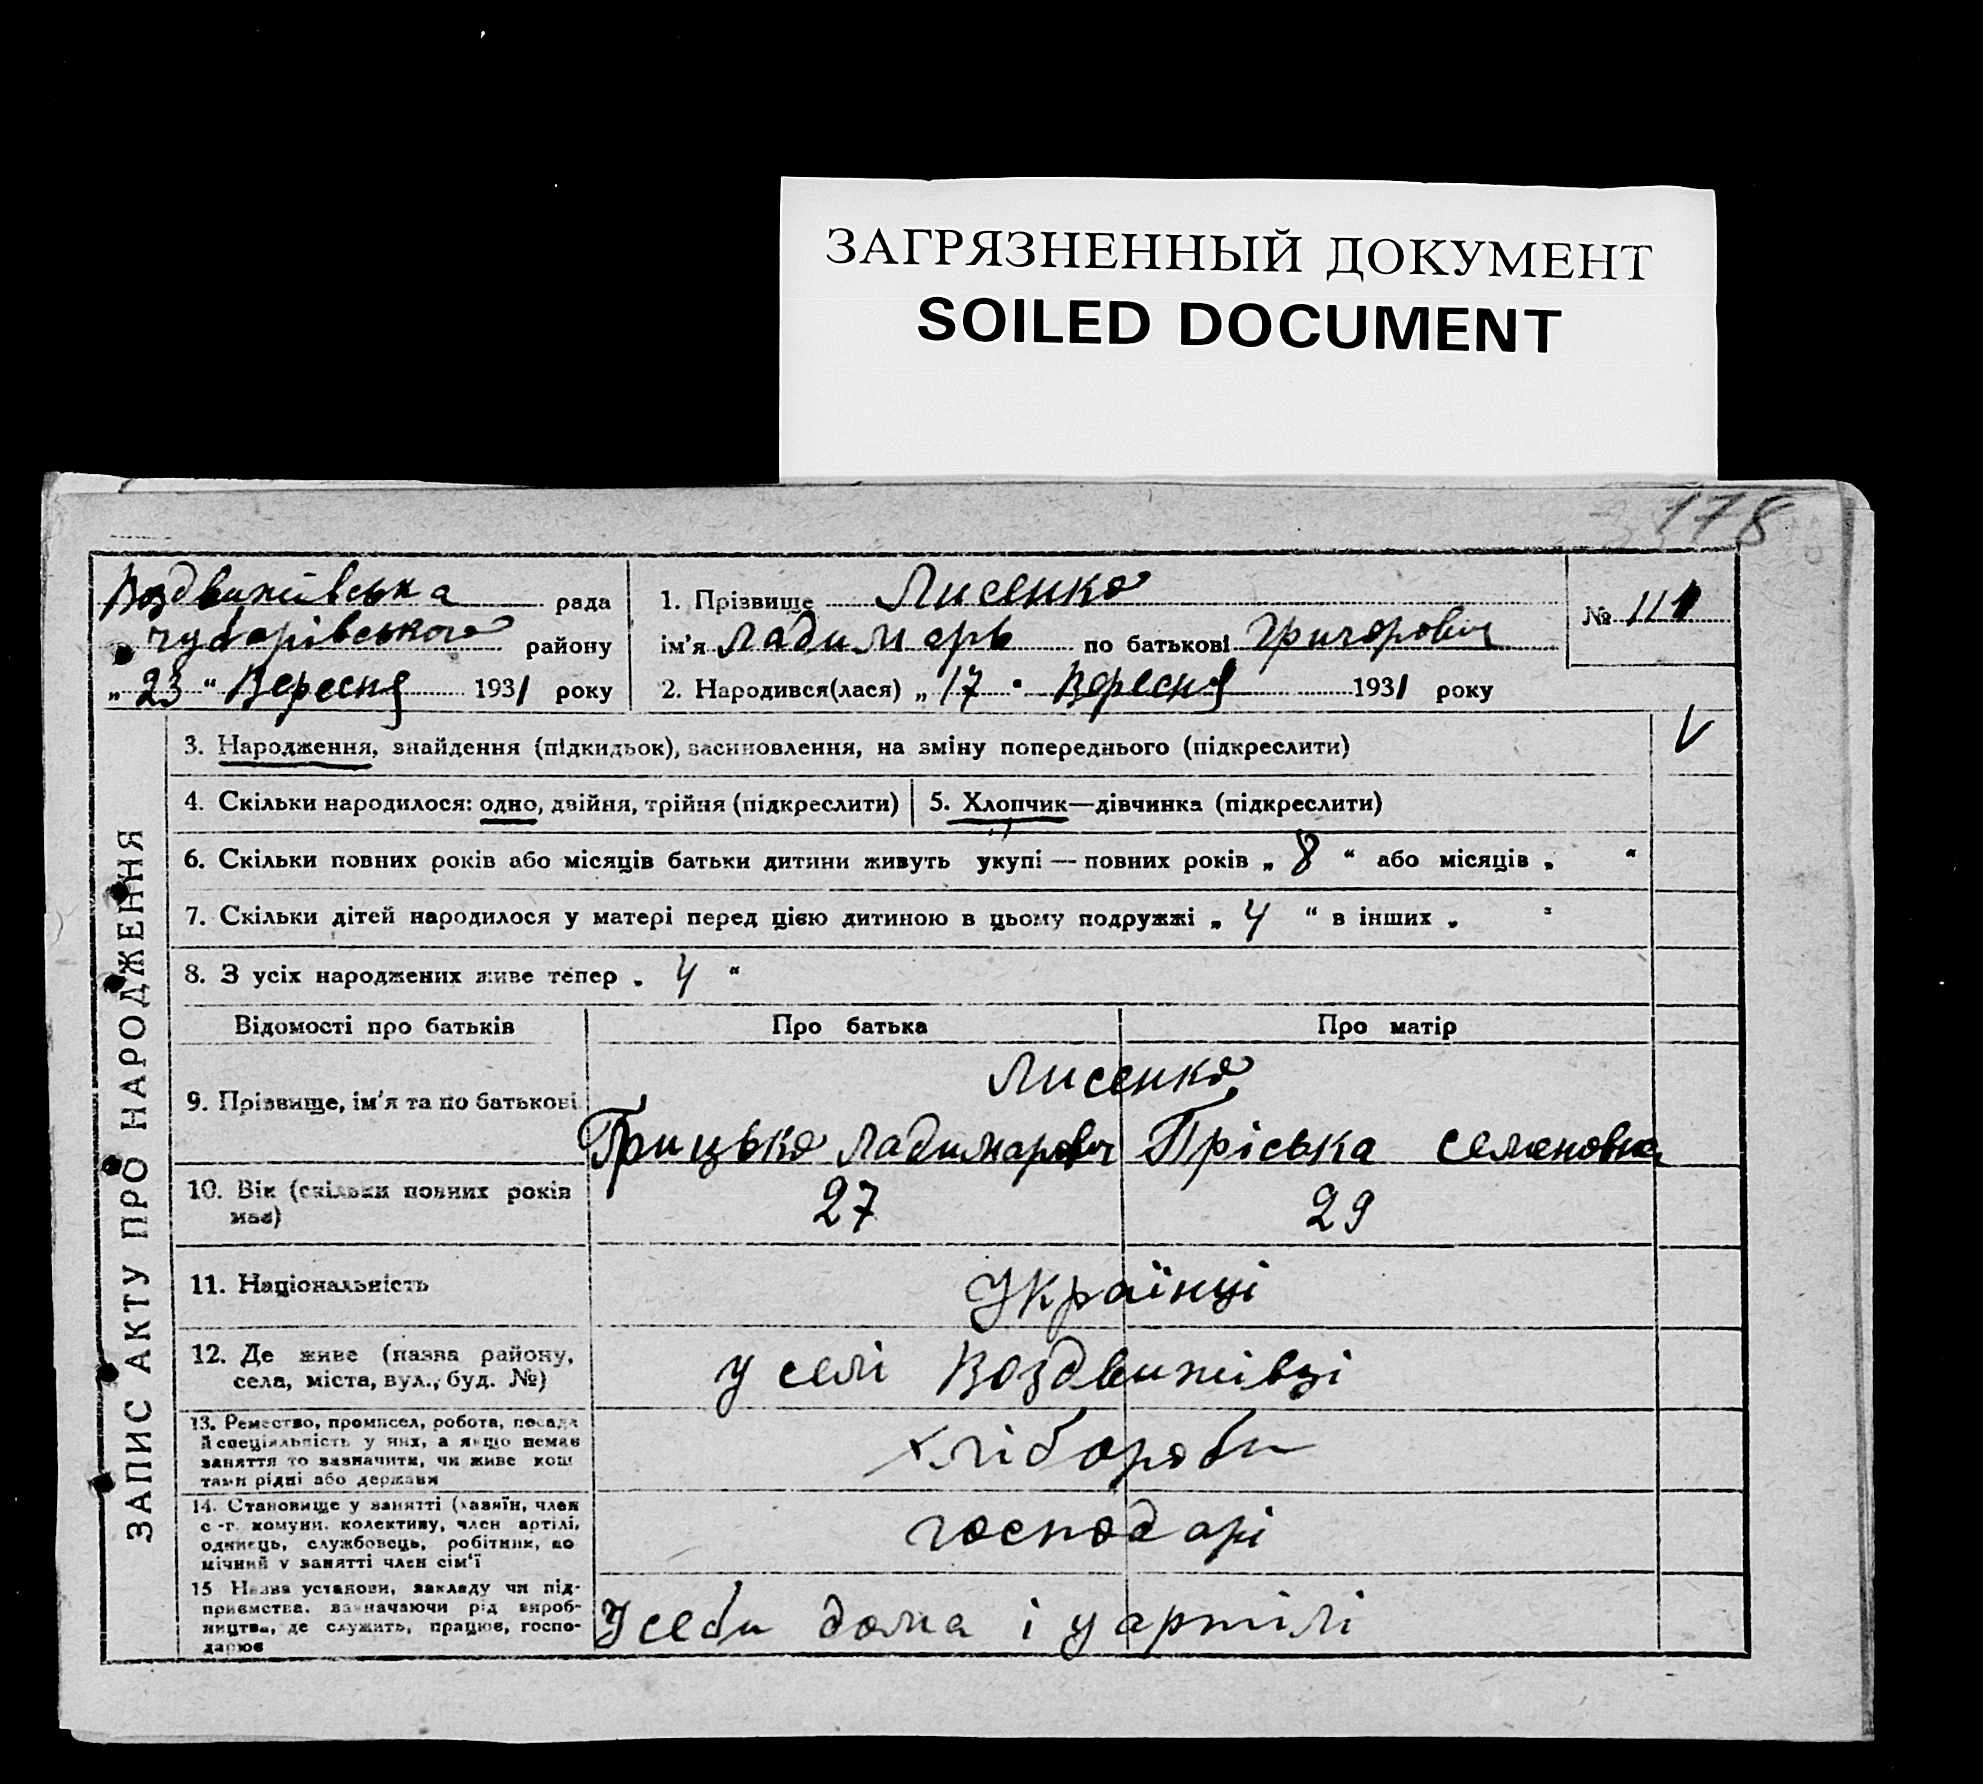 ЗАГРЯЗНЕННЫЙ ДОКУМЕНТ
SOILED DOCUMENT
178
Воздвижівська рада
Чубарівського району
„23“ Вересня 1931 року
1. Прізвище Лисенко
ім'я Ладимарь по батькові Григорович
2. Народився(лася) „17 Вересня 1931 року
№ 111
ЗАПИС АКТУ ПРО НАРОДЖЕННЯ
3. Народження, знайдення (підкидьок), засиновлення, на зміну попереднього (підкреслити)
V
4. Скільки народилося: одно, двійня, трійня (підкреслити)
5. Хлопчик—дівчинка (підкреслити)
6. Скільки повних років або місяців батьки дитини живуть укупі — повних років „ 8 “ або місяців „ “
7. Скільки дітей народилося у матері перед цією дитиною в цьому подружжі „ 4 “ в інших „ “
8. З усіх народжених живе тепер „ 4 “
Відомості про батьків Про батька Про матір
9. Прізвище, ім'я та по батькові
Лисенко
Грицько Ладимарович Пріська Семеновна
10. Вік (скільки повних років
має)
27 29
11. Національність
Українці
12. Де живе (назва району,
села, міста, вул., буд. №)
у селі Воздвижівці
13. Ремество, промисел, робота, посада
й спеціяльність у них, а якщо немає
заняття то зазначити, чи живе кош
тами рідні або держави
хлібороби
14. Становище у занятті (хазяїн, член
с.-г. комуни, колективу, член артілі,
одинець, службовець, робітник, по
мічний у занятті член сім'ї
господарі
15 Назва установи, закладу чи під-
приємства, зазначаючи рід вироб-
ництва, де служить, працює, госпо-
дарює
У себи дома і у артілі